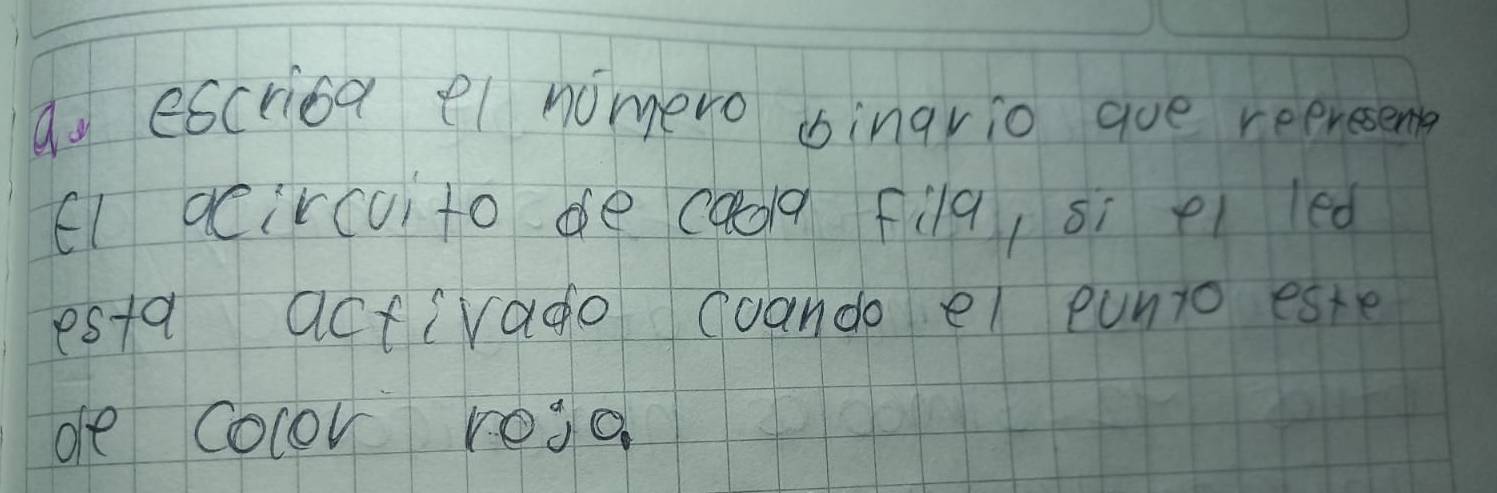 a. escriba el número binario que representa
El acircuito de cada fila, si el led
esta activado cuando el punto este
de color roja